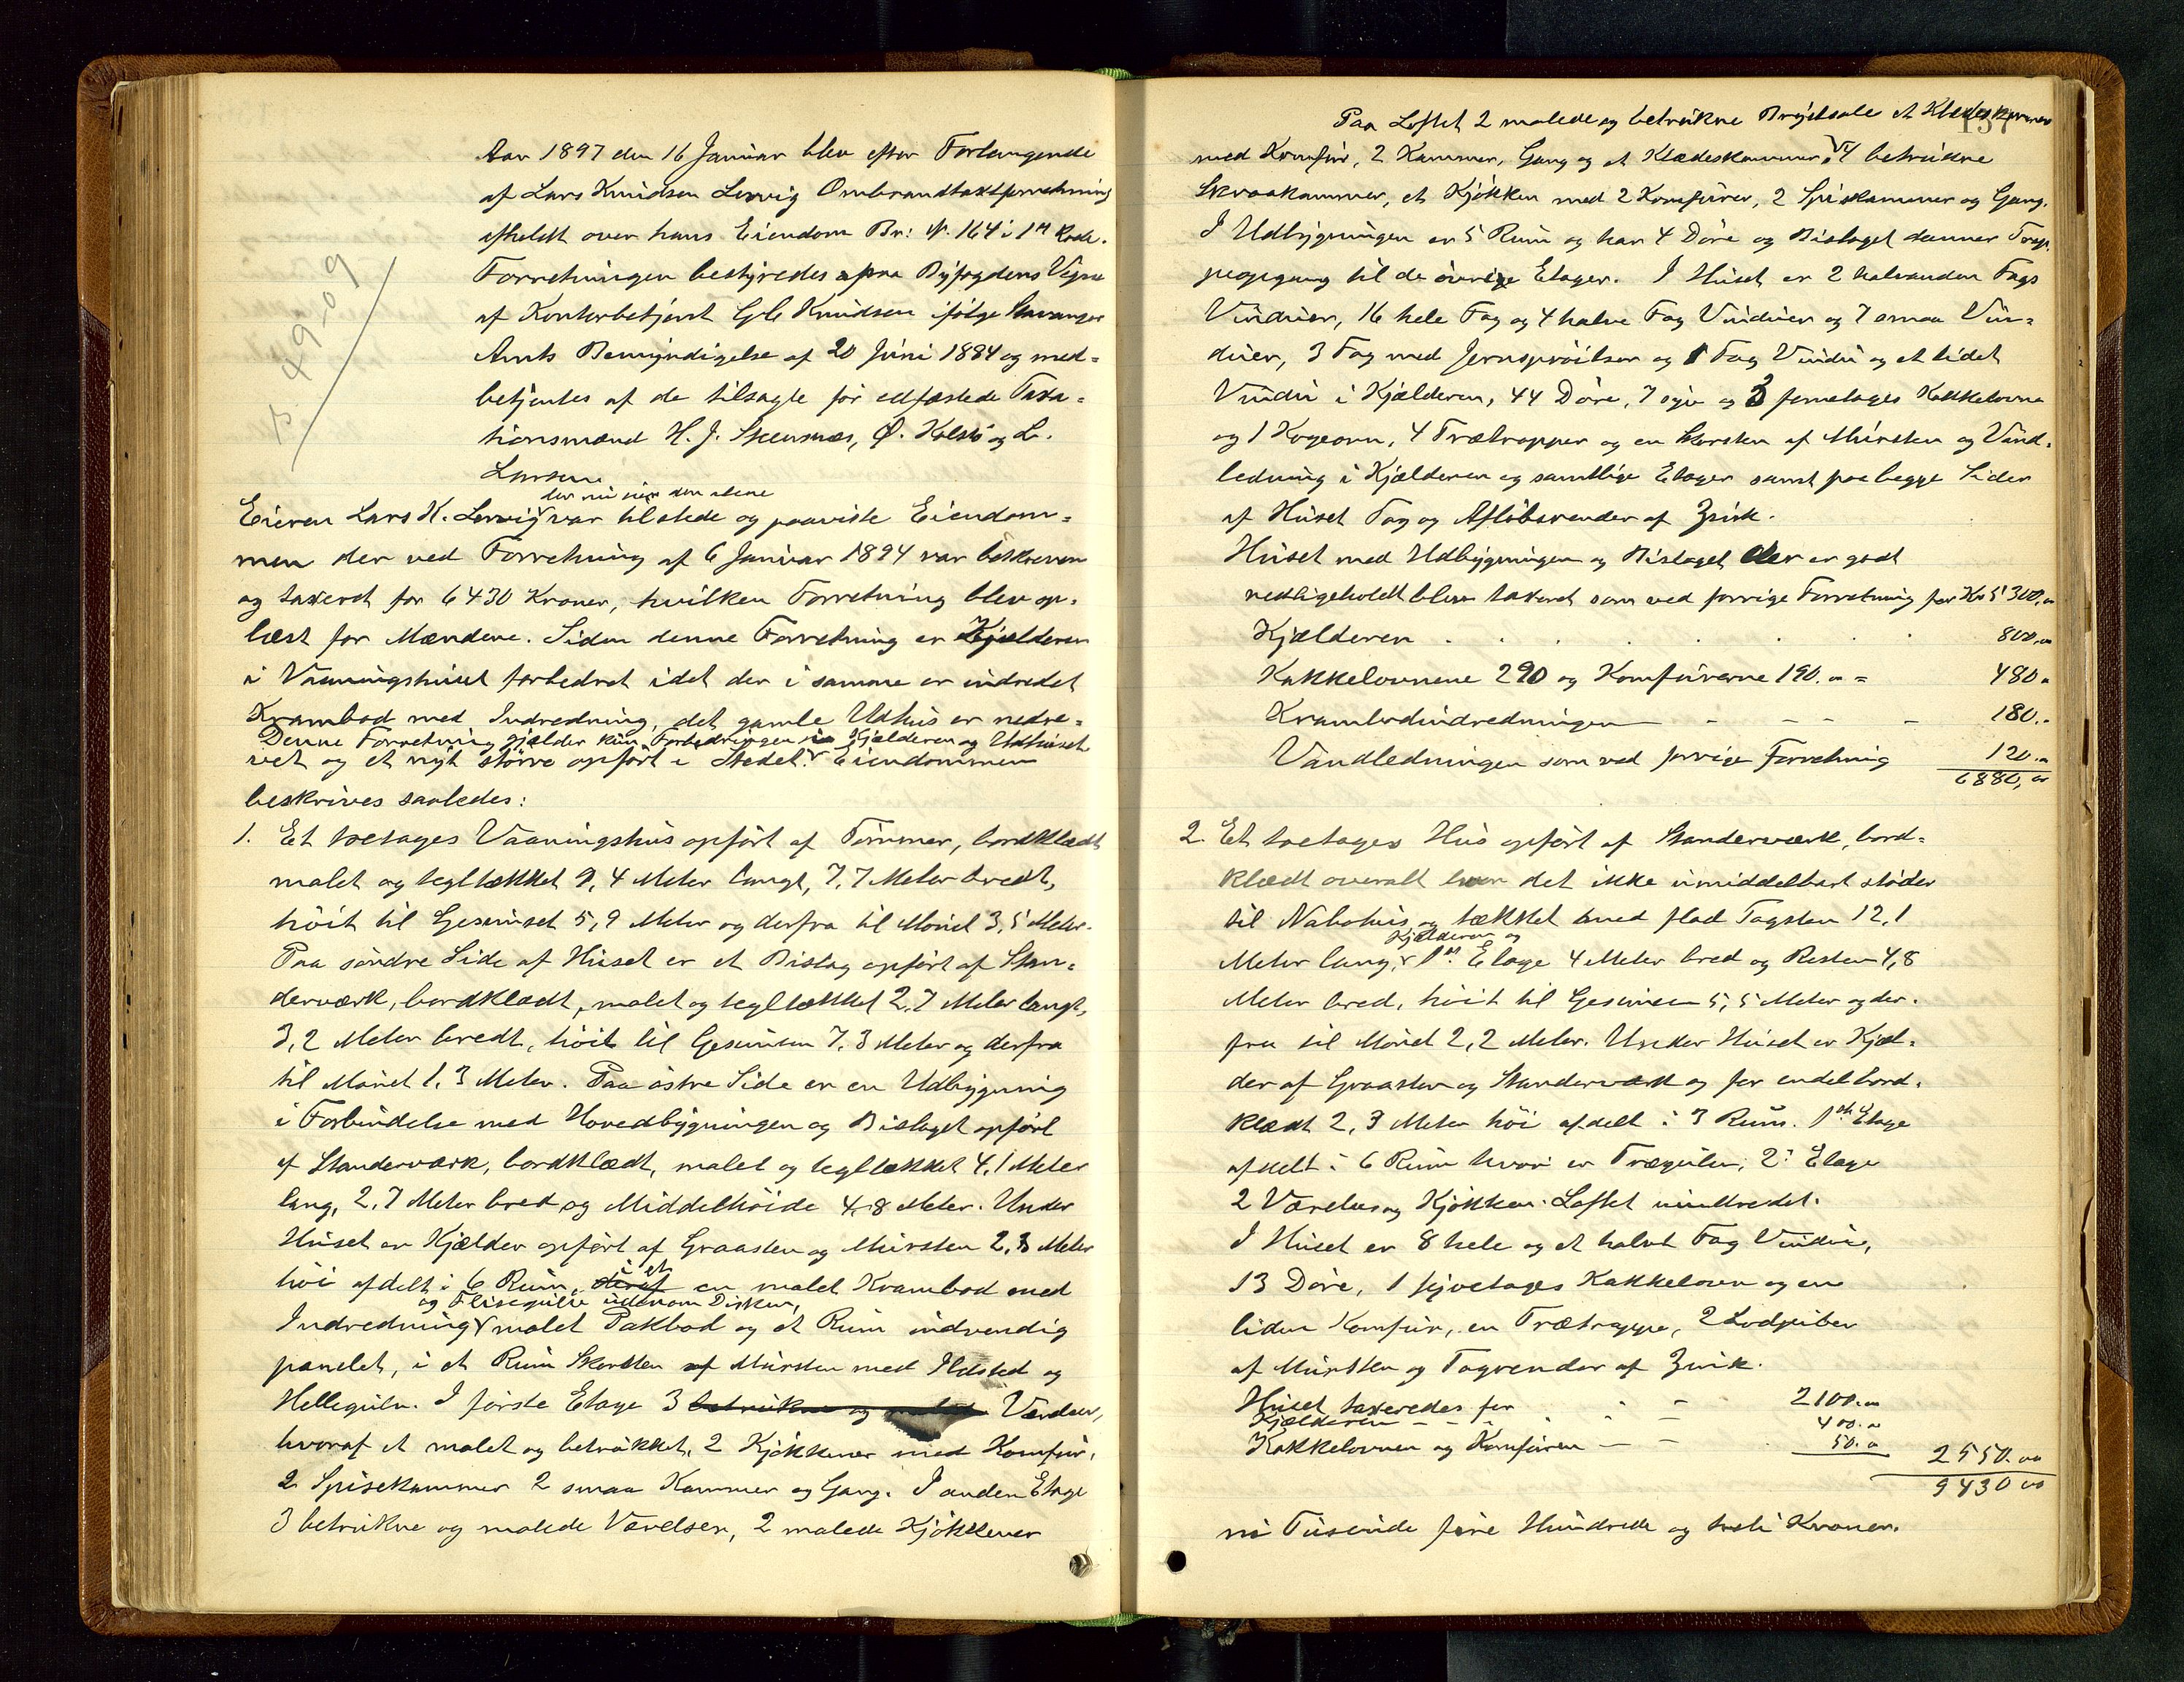 Aar 1897 den 16 Januar blev efter Forlangende
af Lars Knudsen Lervig Ombrandtaxtforretning
afholdt over hans Eiendom Br: N. 164 i 1ste Rode.
Forretningen bestyredes paa Byfogdens Vegne
af Kontorbetjent G. Knudsen ifølge Stavanger
Amts Bemyndigelse af 20 Juni 1884 og med=
betjentes af de tilsagte før edfæstede Taxa=
tionsmænd H. J. Skeusnæs, O. Kolstø og L.
Larsen.
der nu eier den alene
Eieren Lars K. Lervig var tilstede og paaviste Eiendom=
men der ved Forretning af 6 Januar 1894 var beskreven
og taxeret for 6430 Kroner, hvilken Forretning blev op=
læst for Mændene. Siden denne Forretning er Kjælderen
i Vaaningshuset forbedret idet der i samme er indredet
Krambod med Indredning, det gamle Udhus er nedre=
Denne Forretning gjælder kun Forbedringen i Kjælderen og Udhuset.
vet og et nyt større opført i Stedet. Eiendommen
beskrives saaledes:
1. Et toetages Vaaningshus opført af Tømmer, bordklædt
malet og tegltækket 9,4 Meter langt, 7,7 Meter bredt,
høit til Gesimset 5,9 Meter og derfra til Mønet 3,5 Meter.
Paa søndre Side af Huset er et Bislag opført af Stan=
derværk, bordklædt, malet og tegltækket 2,7 Meter langt,
3,2 Meter bredt, høit til Gesimsen 7,3 Meter og derfra
til Mønet 1,3 Meter. Paa østre Side er en Udbygning
i Forbindelse med Hovedbygningen og Bislaget opført
af Standerværk, bordklædt, malet og tegltækket 4,1 Meter
lang, 2,7 Meter bred og Middelhøide 4,8 Meter. Under
Huset er Kjælder opført af Graasten og Mursten 2,3 Meter
i et
høi afdelt i 6 Rum, deraf en malet Krambod med
og Flisegulv udenom Disken,
Indredning malet Pakbod og et Rum indvendig
panelet, i et Rum Skorsten af Mursten med Ildsted og
Hellegulv. I første Etage 3 betrukne og malede Værelser,
hvoraf et malet og betrukket, 2 Kjøkkener med Komfur,
2 Spisekammer 2 smaa Kammer og Gang. I anden Etage
3 betrukne og malede Værelser, 2 malede Kjøkkener
49-09
137
Paa Loftet 2 malede og betrukne Brystsale et Klædeskammer
med Komfur, 2 Kammer, Gang og et Klædeskammer, 4 betrukne
Skraakammer, et Kjøkken med 2 Komfurer, 2 Spiskammer og Gang.
I Udbygningen er 5 Rum og har 4 Døre og Bislaget danner Trap=
peopgang til de øvrige Etager. I Huset er 2 halvanden Fags
Vinduer, 16 hele Fag og 4 halve Fag Vinduer og 7 smaa Vin=
duer, 3 Fag med Jernsprøitser og 1 Fag Vindu og et lidet
Vindu i Kjælderen, 44 Døre, 7 syv og 3 femetages Kakkelovne
og 1 Kogeovn, 4 Trætrapper og en Skorsten af Mursten og Vand=
ledning i Kjælderen og samtlige Etager samt paa begge Sider
af Huset Tag og Afløbsrender af Zink.
Huset med Udbygningen og Bislaget der er godt
vedligeholdt blev taxeret som ved forrige Forretning for Kr 5300,00
Kjælderen . . . . 800,00
Kakkelovnene 290 og Komfurerne 190.00 = 480.00
Krambodindredningen — — — — 180.-
Vandledningen som ved forrige Forretning 120.00
6880,00
2. Et toetages Hus opført af Standerværk, bord=
klædt overalt hvor det ikke umiddelbart støder
til Nabohus og tækket med flad Tagsten 12,1
Kjælderen og
Meter lang, 1ste Etage 4 Meter bred og Resten 4,8
Meter bred, høit til Gesimsen 5,5 Meter og der=
fra til Mønet 2,2 Meter. Under Huset er Kjæl=
der af Graasten og Standerværk og for endel bord=
klædt 2,3 Meter høi afdelt i 3 Rum. 1ste Etage
afdelt i 6 Rum hvori er Trægulv, 2: Etage
2 Værelser og Kjøkken. Loftet uindredet.
I Huset er 8 hele og et halvt Fag Vindu,
13 Døre, 1 syvetages Kakkelovn og en
liden Komfur, en Trætrappe, 2 Lodpiber
af Mursten og Tagrender af Zink.
Huset taxeredes for 2100.00
Kjælderen — — — 400.00
Kakkelovnen og Komfuren — — 50.00 2550.00
9430 00
ni Tusinde fire Hundrede og treti Kroner.